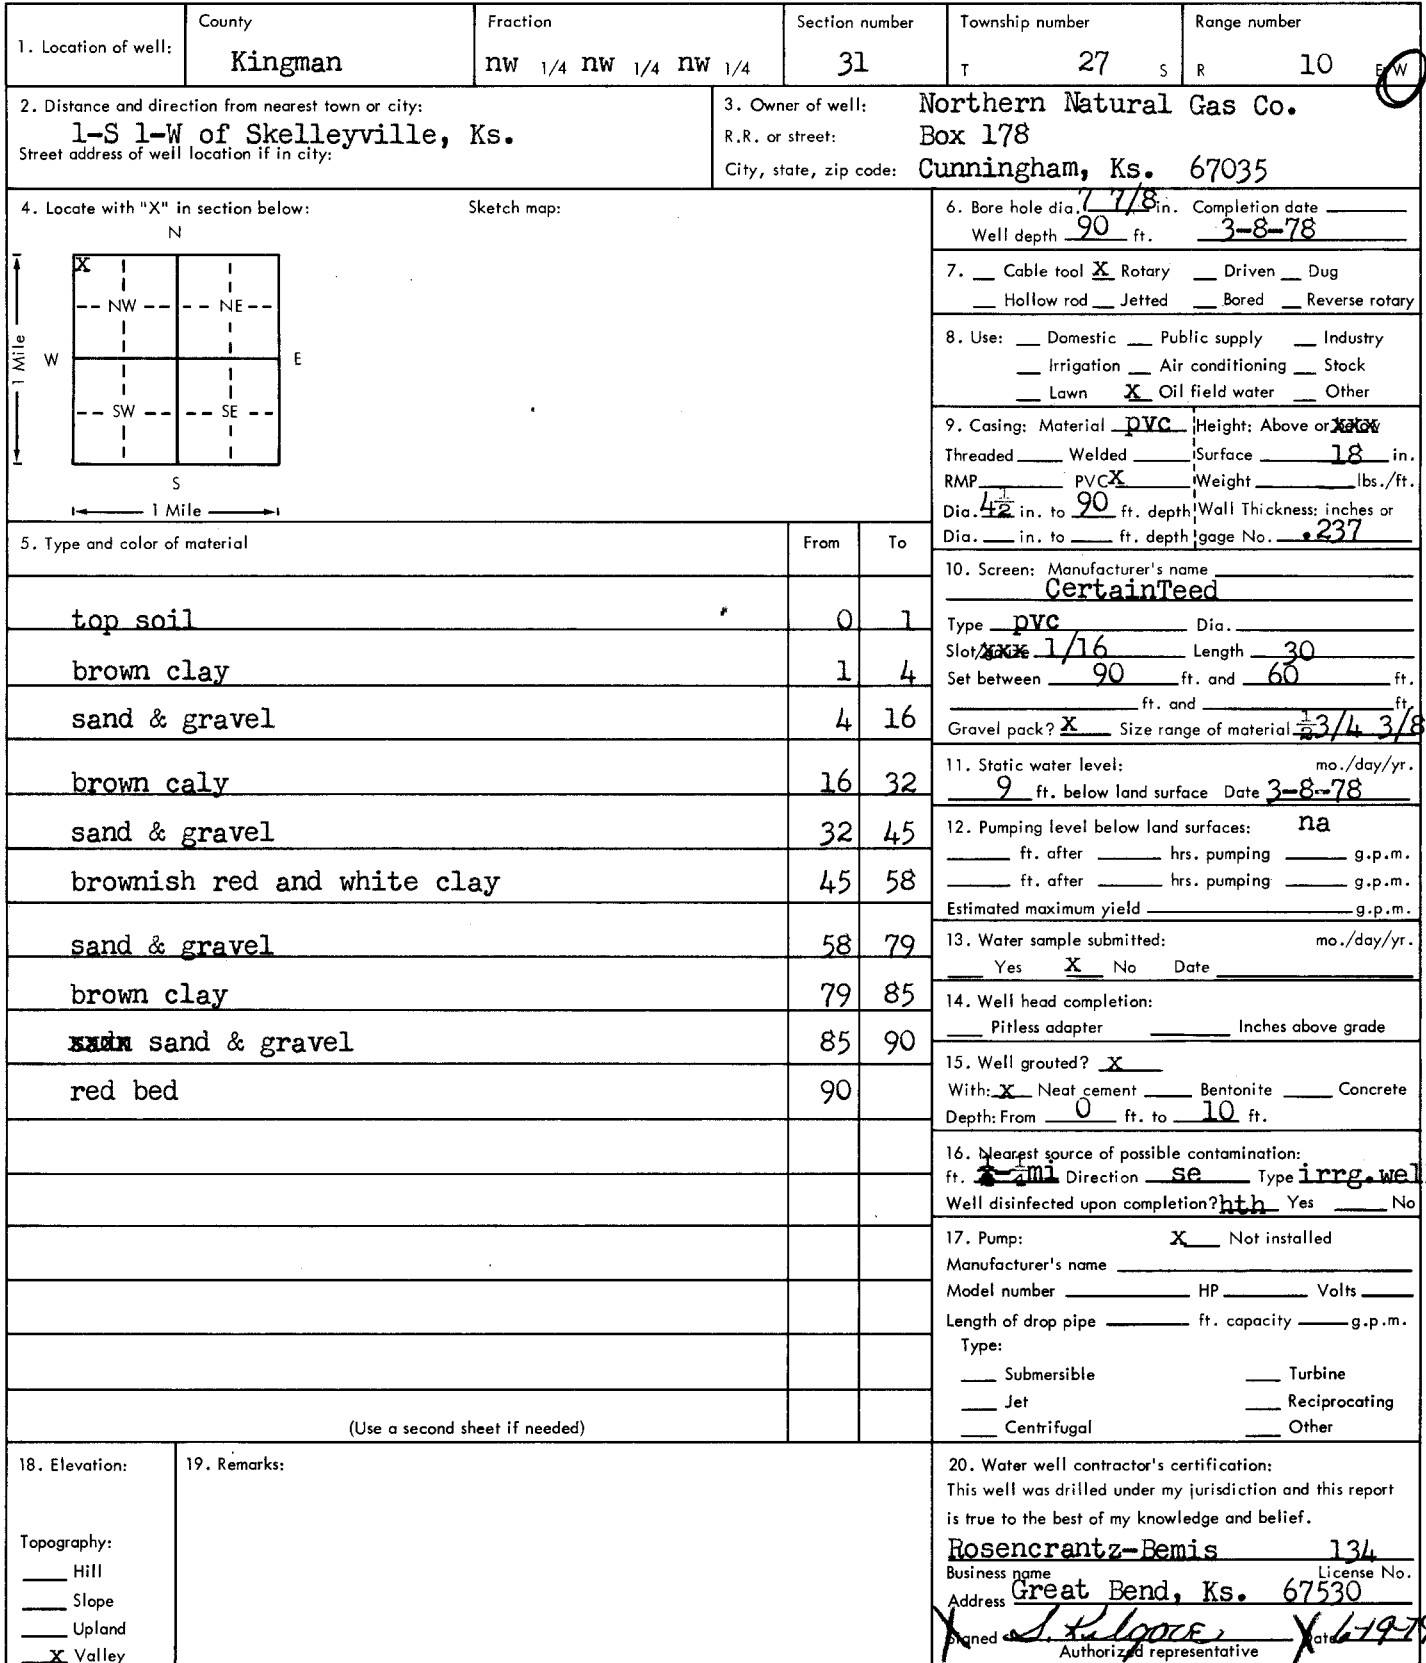 1. Location of well:
County
Kingman
Fraction
nw 1/4 nw 1/4 nw 1/4
Section number
31
Township number
T 27 S
Range number
R 10 E W
2. Distance and direction from nearest town or city:
1-S 1-W of Skelleyville, Ks.
Street address of well location if in city:
3. Owner of well: Northern Natural Gas Co.
R.R. or street: Box 178
City, state, zip code: Cunningham, Ks. 67035
4. Locate with "X" in section below: Sketch map:
N
X
NW NE
W E
1 Mile
SW SE
S
1 Mile
5. Type and color of material From To
top soil 0 1
brown clay 1 4
sand & gravel 4 16
brown caly 16 32
sand & gravel 32 45
brownish red and white clay 45 58
sand & gravel 58 79
brown clay 79 85
sand & gravel 85 90
red bed 90
(Use a second sheet if needed)
6. Bore hole dia. 7 7/8 in. Completion date
Well depth 90 ft. 3-8-78
7. Cable tool X Rotary Driven Dug
Hollow rod Jetted Bored Reverse rotary
8. Use: Domestic Public supply Industry
Irrigation Air conditioning Stock
Lawn X Oil field water Other
9. Casing: Material pvc Height: Above or xxx
Threaded Welded Surface 18 in.
RMP PVC X Weight lbs./ft.
Dia. 4½ in. to 90 ft. depth Wall Thickness: inches or
Dia. in. to ft. depth gage No. .237
10. Screen: Manufacturer's name
CertainTeed
Type pvc Dia.
Slot/xxx 1/16 Length 30
Set between 90 ft. and 60 ft.
ft. and ft.
Gravel pack? X Size range of material ½ 3/4 3/8
11. Static water level: mo./day/yr.
9 ft. below land surface Date 3-8-78
12. Pumping level below land surfaces: na
ft. after hrs. pumping g.p.m.
ft. after hrs. pumping g.p.m.
Estimated maximum yield g.p.m.
13. Water sample submitted: mo./day/yr.
Yes X No Date
14. Well head completion:
Pitless adapter Inches above grade
15. Well grouted? X
With: X Neat cement Bentonite Concrete
Depth: From 0 ft. to 10 ft.
16. Nearest source of possible contamination:
ft. ¼mi Direction se Type irrg.wel
Well disinfected upon completion? hth Yes No
17. Pump: X Not installed
Manufacturer's name
Model number HP Volts
Length of drop pipe ft. capacity g.p.m.
Type:
Submersible Turbine
Jet Reciprocating
Centrifugal Other
18. Elevation:
Topography:
Hill
Slope
Upland
X Valley
19. Remarks:
20. Water well contractor's certification:
This well was drilled under my jurisdiction and this report
is true to the best of my knowledge and belief.
Rosencrantz-Bemis 134
Business name License No.
Address Great Bend, Ks. 67530
X Signed S. Kilgore X Date
Authorized representative